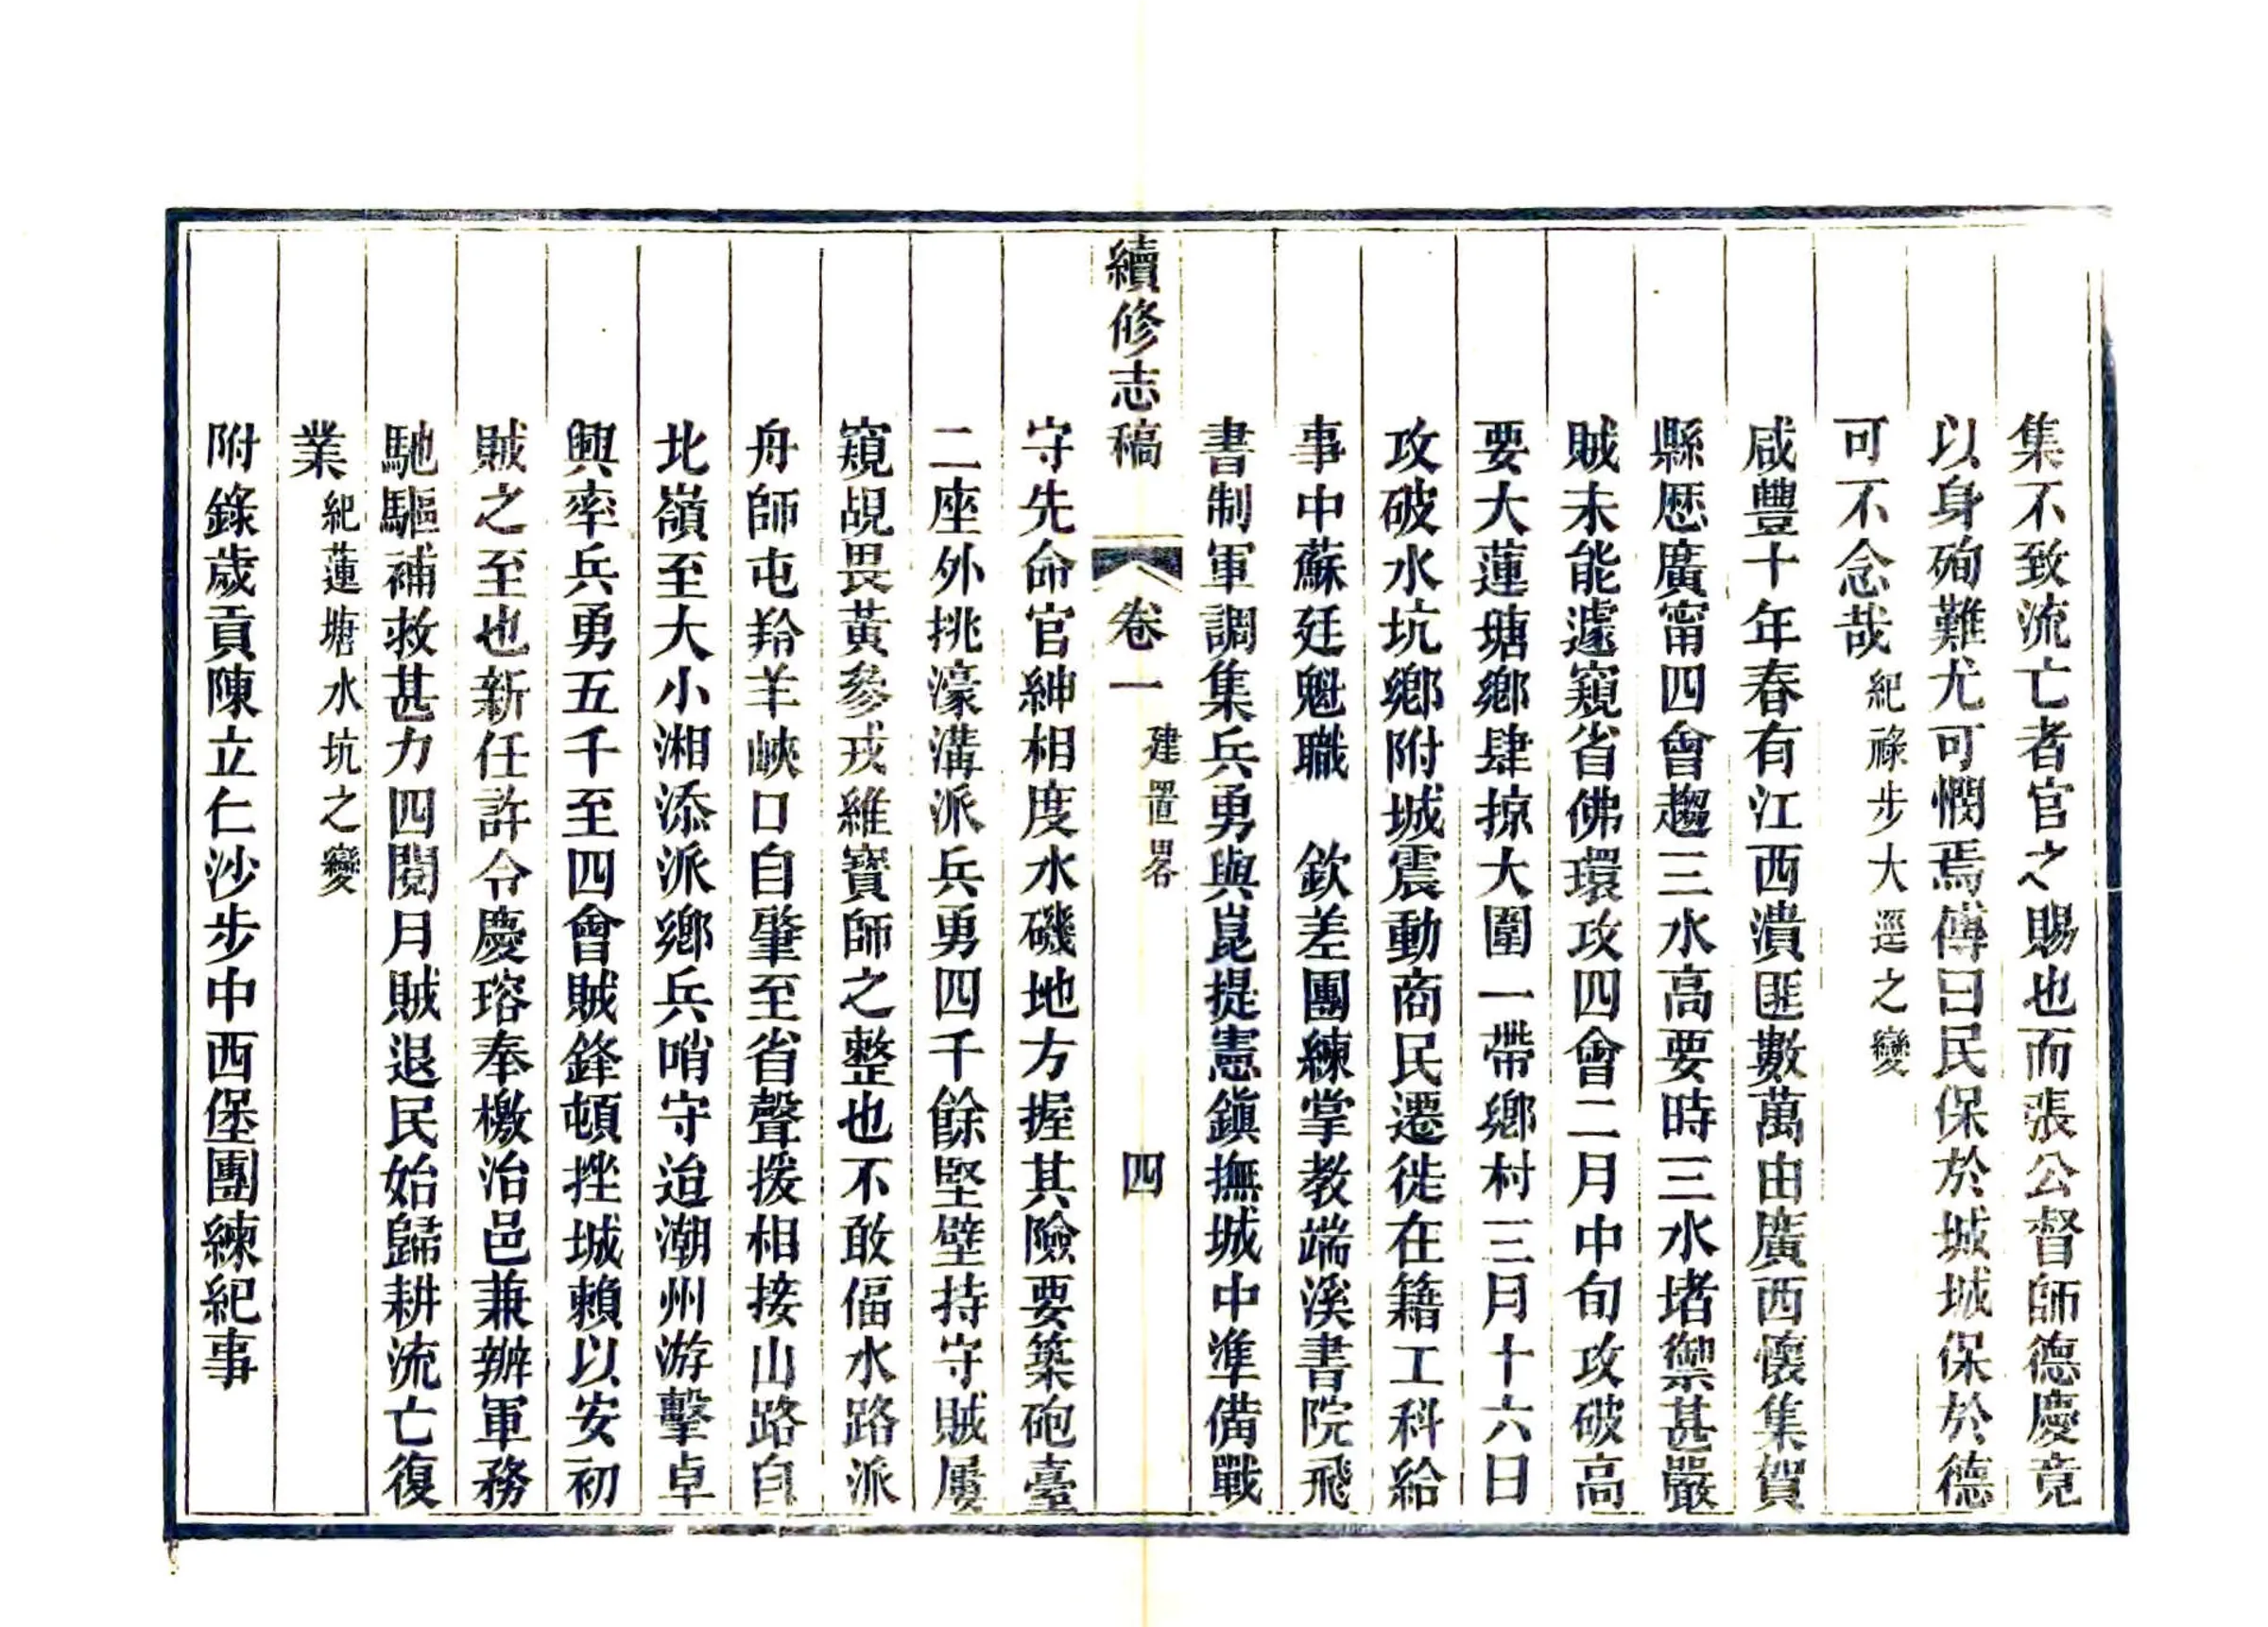 集不致流亡者官之賜也而張公督師德慶竟
以身殉難尤可憫焉傅曰民保於城城保於德
可不念哉紀祿步大逕之變
咸豐十年春有江西潰匪數萬由廣西懷集賀
縣歷廣甯四會趨三水高要時三水堵禦甚嚴
賊未能遽窺省佛環攻四會二月中旬攻破高
要大蓮塘鄉肆掠大圍一帶鄉村三月十六日
攻破水坑鄉附城震動商民遷徙在籍工科給
事中蘇廷魁職　欽差團練掌教端溪書院飛
書制軍調集兵勇與崑提憲鎮撫城中準備戰
續修志稿　卷一　建置畧　四
守先命官紳相度水磯地方握其險要築砲臺
二座外挑濠溝派兵勇四千餘堅壁持守賊屢
窺覘畏黃參戎維寶師之整也不敢偪水路派
舟師屯羚羊峽口自肇至省聲援相接山路自
北嶺至大小湘添派鄉兵哨守迨潮州游擊卓
興率兵勇五千至四會賊鋒頓挫城賴以安初
賊之至也新任許令慶瑢奉檄治邑兼辦軍務
馳驅補救甚力四閱月賊退民始歸耕流亡復
業紀蓮塘水坑之變
附錄歲貢陳立仁沙步中西堡團練紀事